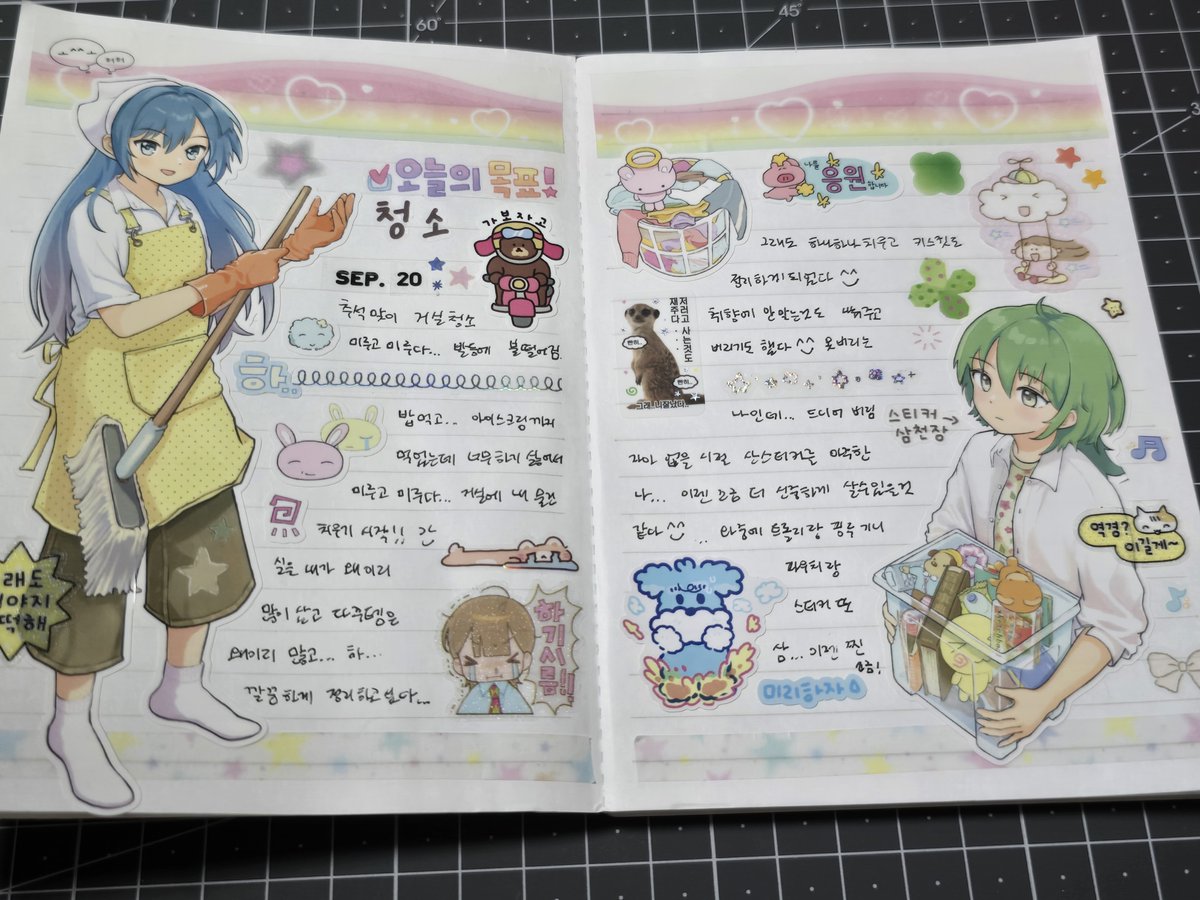 60
45
ㅗㅆㅗ
허허
오늘의 목표!
청소
가보자고
SEP. 20
추석 맞이 거실 청소
미루고 미루다... 발등에 불떨어짐.
하..
밥먹고... 아이스크림까지
먹었는데 너무하기 싫어서
미루고 미루다... 거실에 내 물건
치우기 시작!!
실은 내가 왜이리
많이 샀고 다꾸템은
왜이리 많고... 하...
깔끔하게 정리하고싶다...
하기시름!!
래도
야지
떡해
나를 응원합니다
그래도 하나하나 치우고
정리하게되었다 ^^
저러고 사는것도 재주다
뻔히..
뻔히..
취향에 안맞는것도 나눠주고
버리기도 했다 ^^ 못버리는
나인데... 드디어 버림
스티커 삼천장
자아 없을 시절 산스티커는 미죽한
나... 이젠 조금 더 신중하게 살수있을것
같다 ^^ ... 와중에 트롤리랑 필루 끼니
파우치랑
스티커 또
삼... 이젠 찐
조금!
미리하자
역경?
이길게~